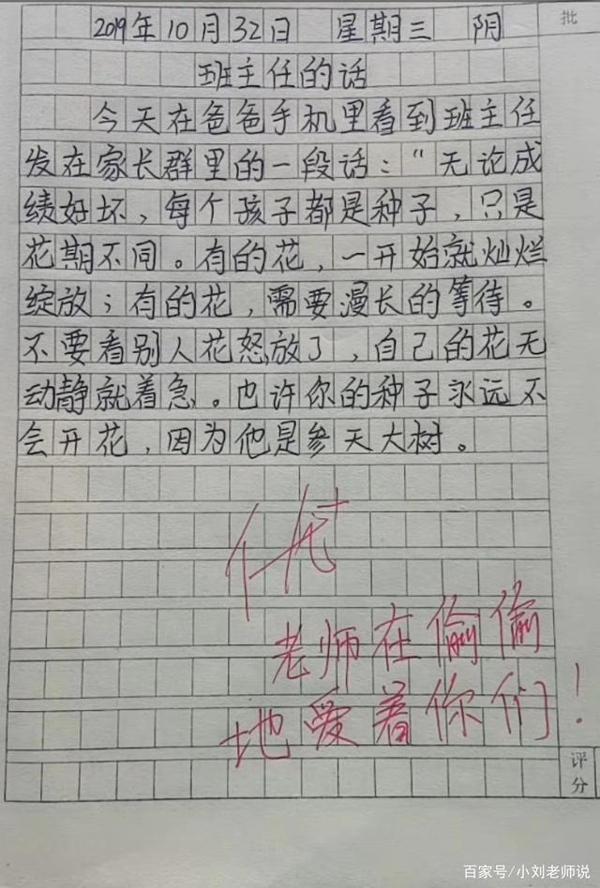 2019年10月32日 星期三 阴
班主任的话
今天在爸爸手机里看到班主任
发在家长群里的一段话：“无论成
绩好坏，每个孩子都是种子，只是
花期不同。有的花，一开始就灿烂
绽放；有的花，需要漫长的等待。
不要看别人花怒放了，自己的花无
动静就着急。也许你的种子永远不
会开花，因为他是参天大树。
优+
老师在偷偷
地爱着你们！
批
评分
百家号/小刘老师说